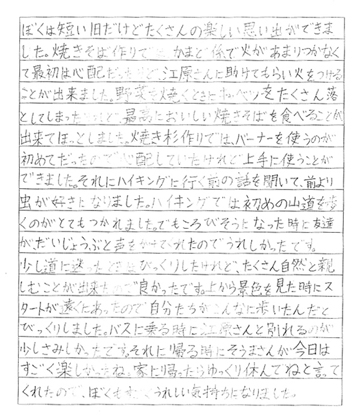 ぼくは短い旧だけどたくさんの楽しい思い出ができま
した。焼きそば作りで かまど係で火があまりつかなく
て最初は心配だった 江原さんに助けてもらい火をつける
ことが出来ました。野菜を焼くときキャベツをたくさん落
としてしまった 最高においしい焼きそばを食べることが
出来てほっとしました。焼き杉作りでは、バーナーを使うのが
初めてだったので心配していたけれど上手に使うことが
できました。それにハイキングに行く前の話を聞いて、前より
虫が好きになりました。ハイキングでは初めの山道を歩
くのがとてもつかれました。でもころびそうになった時に友達
がだいじょうぶと声をかけてくれたのでうれしかったです。
少し道に迷った びっくりしたけれど、たくさん自然と親
しむことが出来たので良かったです。上から景色を見た時にス
タートが遠くにあったので自分たちがこんなに歩いたんだと
びっくりしました。バスに乗る時に江原さんと別れるのが
少しさみしかったです。それに帰る時にそうまさんが今日は
すごく楽しかったね。家に帰ったらゆっくり休んでねと言って
くれたので、ぼくも うれしい気持ちになりました。